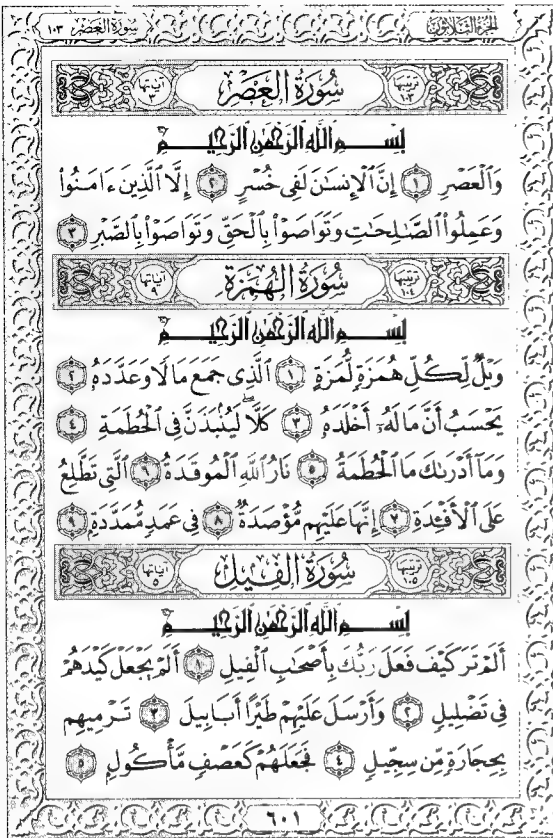 الجزء الثلاثون سورة العصر ١٠٣
ترتيبها ١٠٣ سورة العصر آياتها ٣
بسم الله الرحمن الرحيم
وَٱلْعَصْرِ ١ إِنَّ ٱلْإِنسَٰنَ لَفِى خُسْرٍ ٢ إِلَّا ٱلَّذِينَ ءَامَنُوا۟
وَعَمِلُوا۟ ٱلصَّٰلِحَٰتِ وَتَوَاصَوْا۟ بِٱلْحَقِّ وَتَوَاصَوْا۟ بِٱلصَّبْرِ ٣
ترتيبها ١٠٤ سُورَةُ الهُمَزَةِ آياتها ٩
بسم الله الرحمن الرحيم
وَيْلٌ لِّكُلِّ هُمَزَةٍ لُّمَزَةٍ ١ ٱلَّذِى جَمَعَ مَالًا وَعَدَّدَهُۥ ٢
يَحْسَبُ أَنَّ مَالَهُۥٓ أَخْلَدَهُۥ ٣ كَلَّا ۖ لَيُنۢبَذَنَّ فِى ٱلْحُطَمَةِ ٤
وَمَآ أَدْرَىٰكَ مَا ٱلْحُطَمَةُ ٥ نَارُ ٱللَّهِ ٱلْمُوقَدَةُ ٦ ٱلَّتِى تَطَّلِعُ
عَلَى ٱلْأَفْـِٔدَةِ ٧ إِنَّهَا عَلَيْهِم مُّؤْصَدَةٌ ٨ فِى عَمَدٍ مُّمَدَّدَةٍۭ ٩
ترتيبها ١٠٥ سُورَةُ الفِيلِ آياتها ٥
بسم الله الرحمن الرحيم
أَلَمْ تَرَ كَيْفَ فَعَلَ رَبُّكَ بِأَصْحَٰبِ ٱلْفِيلِ ١ أَلَمْ يَجْعَلْ كَيْدَهُمْ
فِى تَضْلِيلٍ ٢ وَأَرْسَلَ عَلَيْهِمْ طَيْرًا أَبَابِيلَ ٣ تَرْمِيهِم
بِحِجَارَةٍ مِّن سِجِّيلٍ ٤ فَجَعَلَهُمْ كَعَصْفٍ مَّأْكُولٍۭ ٥
٦٠١